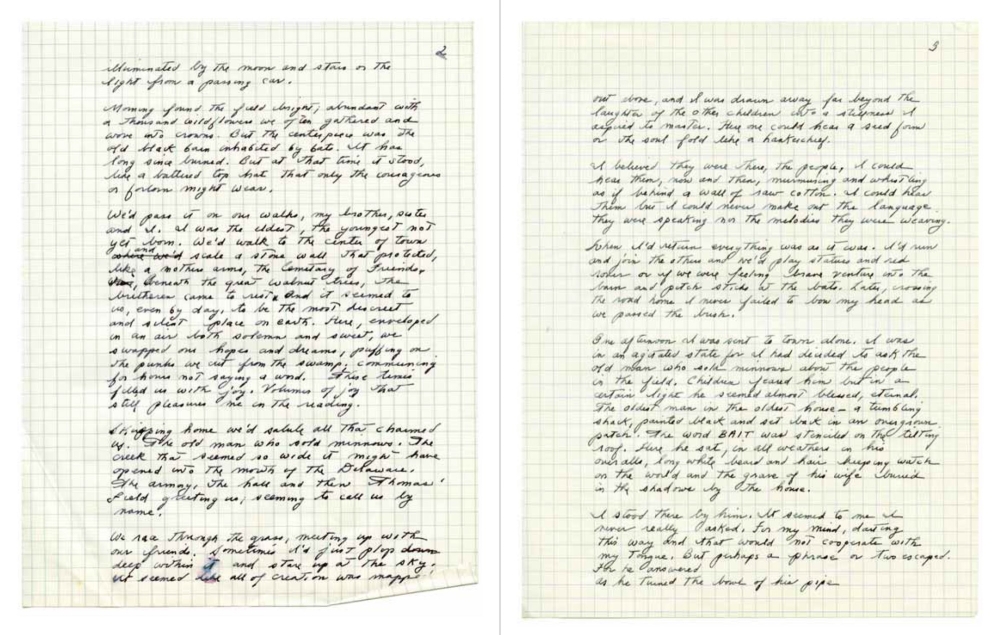 2
illuminated by the moon and stars or the
light from a passing car.
Morning found the field bright, abundant with
a thousand wildflowers we often gathered and
wove into crowns. But the centerpiece was the
old black barn inhabited by bats. It has
long since burned. But at that time it stood,
like a battered top hat that only the courageous
or forlorn might wear.
We'd pass it on our walks, my brother, sister
and I. I was the eldest, the youngest not
yet born. We'd walk to the center of town
and
where we'd scale a stone wall that protected,
like a mothers arms, the Cemetary of Friends,
beneath the great walnut trees, the
bretheren came to rest. And it seemed to
us, even by day, to be the most discreet
and silent place on earth. Here, enveloped
in an air both solemn and sweet, we
swapped our hopes and dreams, puffing on
the punks we cut from the swamp. communing
for hours not saying a word. These times
filled us with joy. Volumes of joy that
still pleasures me in the reading.
Skipping home we'd salute all that charmed
us. The old man who sold minnows. The
creek that seemed so wide it might have
opened into the mouth of the Delaware.
The armory, the hall and then Thomas'
Field greeting us, seeming to call us by
name.
We ran through the grass, meeting up with
our friends. Sometimes I'd just plop down
deep within it and stare up at the sky.
It seemed like all of creation was mapp
3
out above, and I was drawn away far beyond the
laughter of the other children into a stillness I
aspired to master. Here one could hear a seed form
or the soul fold like a hankerchief.
I believed they were there, the people, I could
hear them, now and then, murmuring and whistling
as if behind a wall of raw cotton. I could hear
them but I could never make out the language
they were speaking nor the melodies they were weaving.
When I'd return everything was as it was. I'd run
and join the others and we'd play statues and red
rover or if we were feeling brave venture into the
barn and pitch sticks at the bats. Later, crossing
the road home I never failed to bow my head as
we passed the bush.
One afternoon I was sent to town alone. I was
in an agitated state for I had decided to ask the
old man who sold minnows about the people
in the field. Children feared him but in a
certain light he seemed almost blessed, eternal.
The oldest man in the oldest house - a tumbling
shack, painted black and set back in an overgrown
patch. The word BAIT was stenciled on the tilting
roof. Here he sat, in all weathers in his
overalls, long white beard and hair keeping watch
on the world and the grave of his wife buried
in the shadows by the house.
I stood there by him. It seemed to me I
never really asked. For my mind, darting
this way and that would not cooperate with
my tongue. But perhaps a phrase or two escaped.
For he answered
as he turned the bowl of his pipe